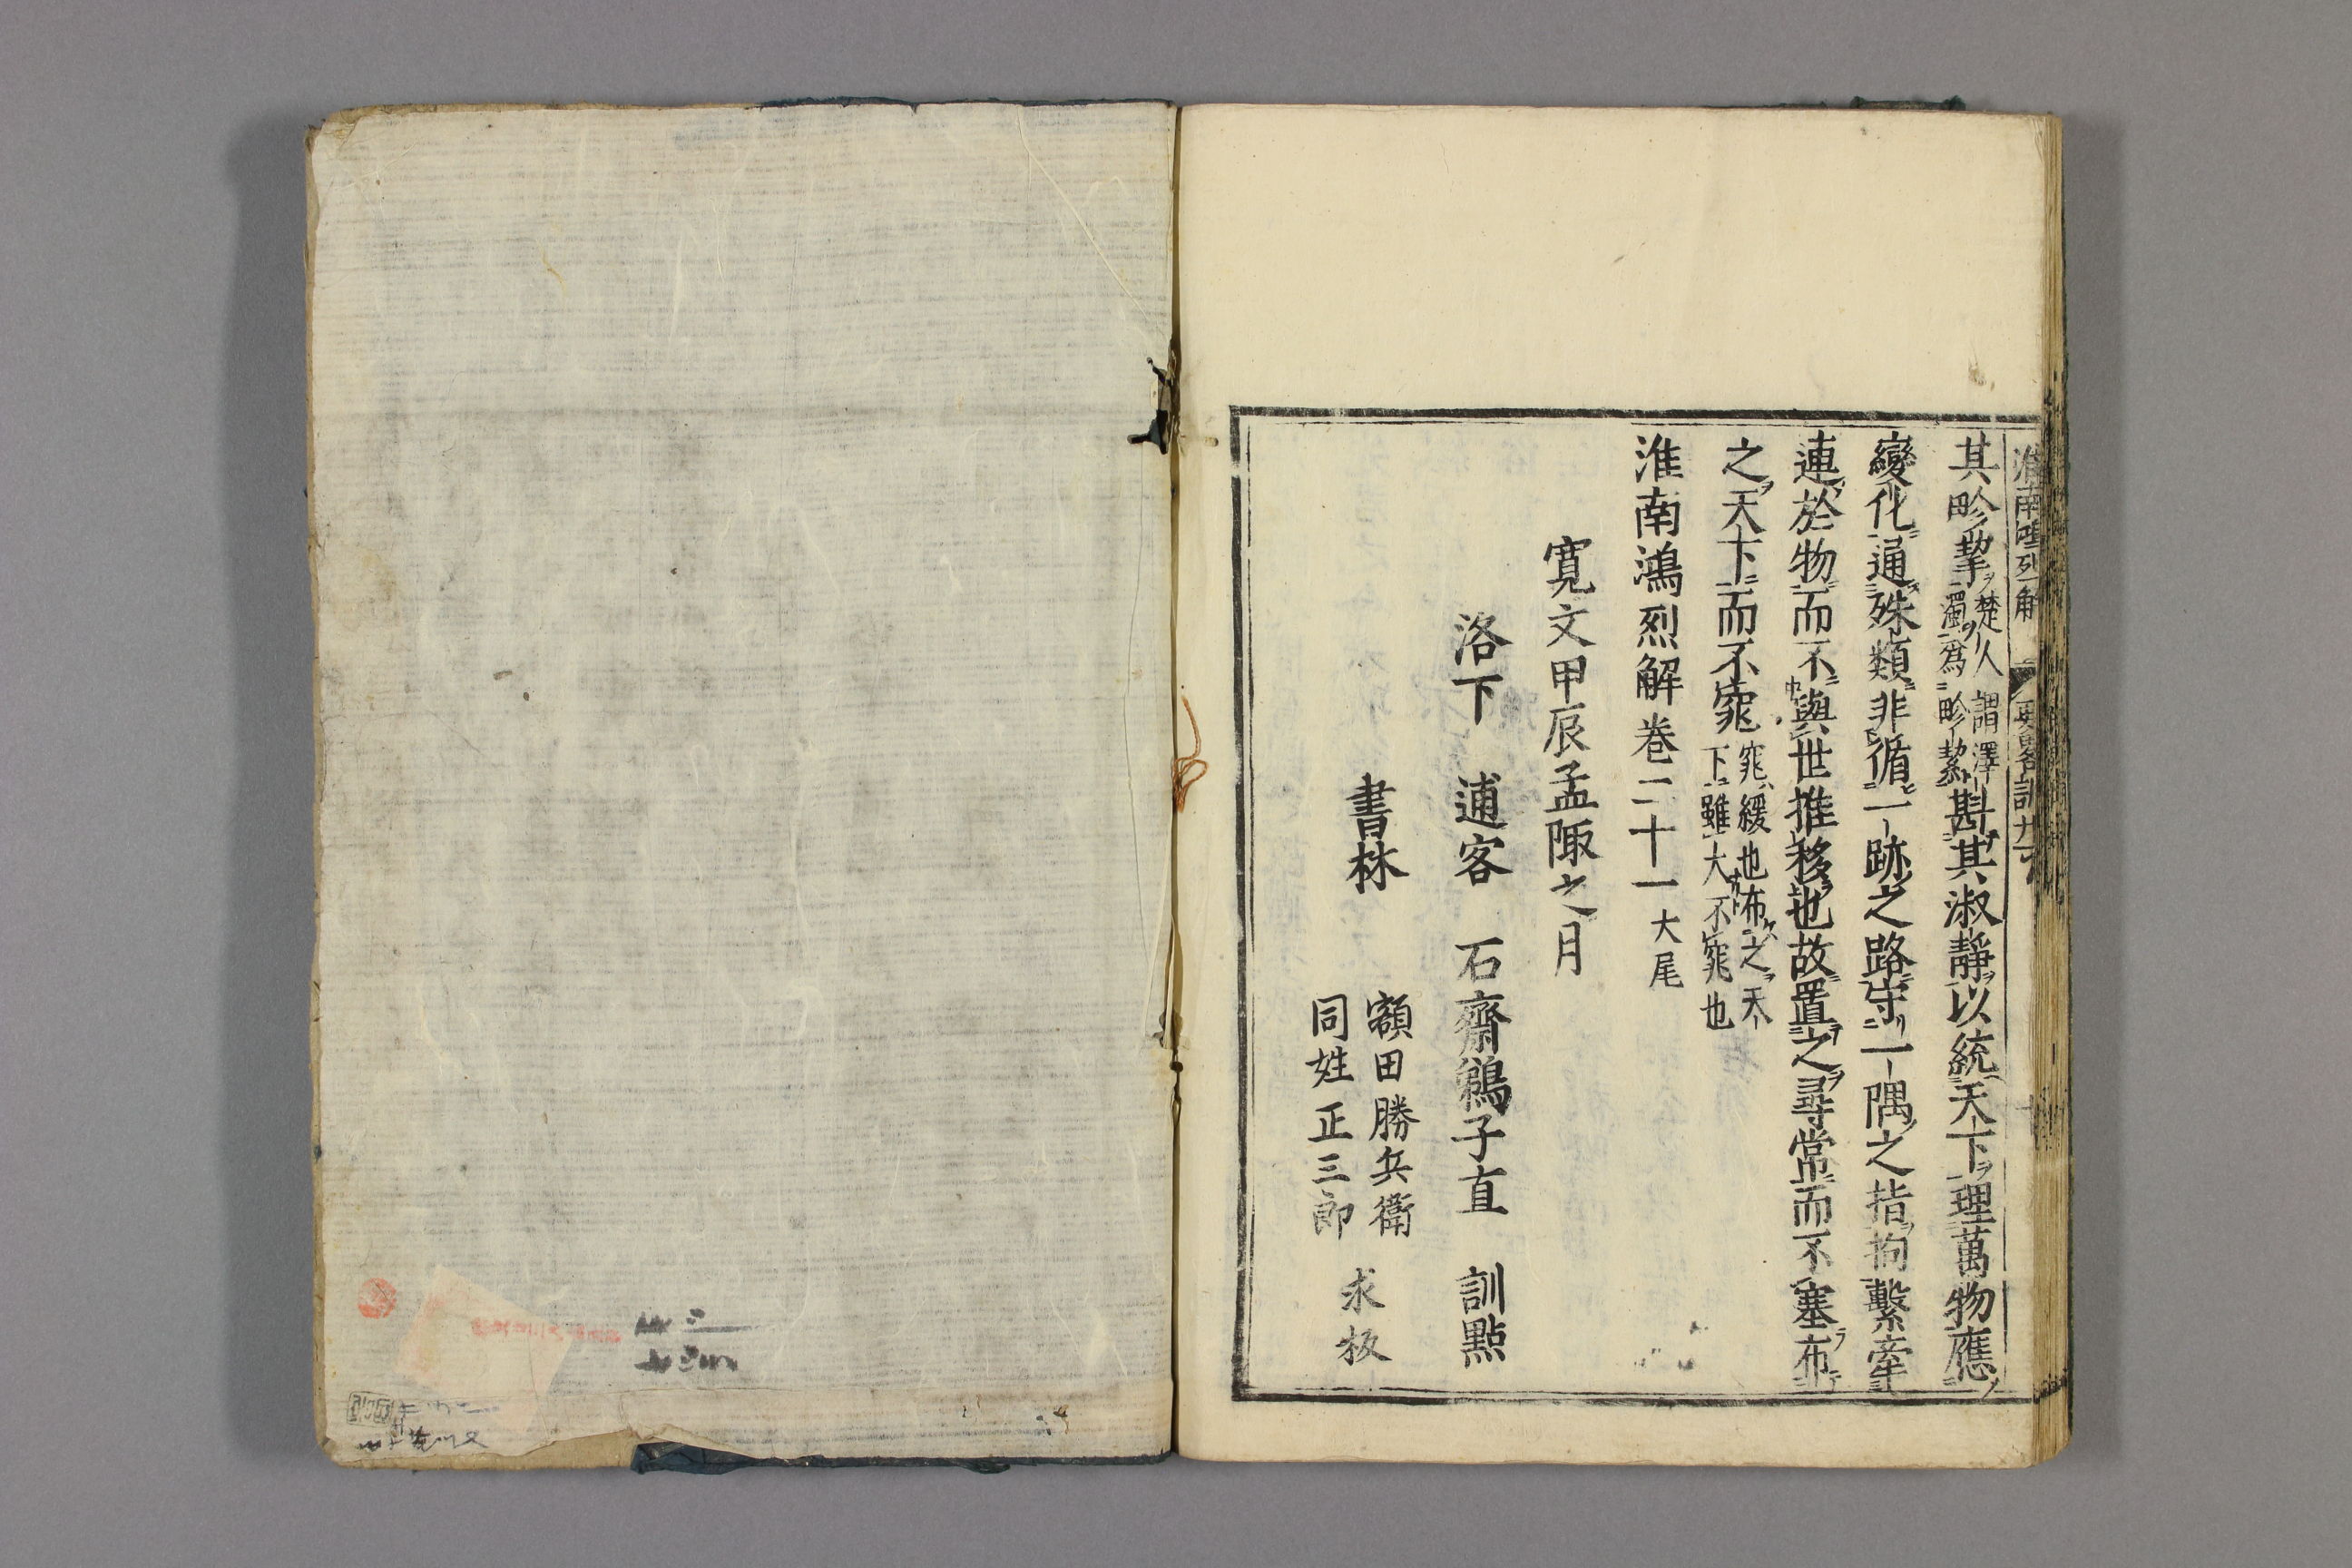 淮南鴻烈解
其畛挈楚人謂澤濁爲畛挈斟其淑靜以統天下理萬物應
變化通殊類非循一跡之路守一隅之指拘繫牽
連於物而不與世推移也故置之尋常而不塞布
之天下而不窕窕緩也布之天下雖大不窕也
淮南鴻烈解卷二十一大尾
寛文甲辰孟陬之月
洛下 逋客 石齋鵜子直 訓點
書林
額田勝兵衛
同姓正三郎
求板